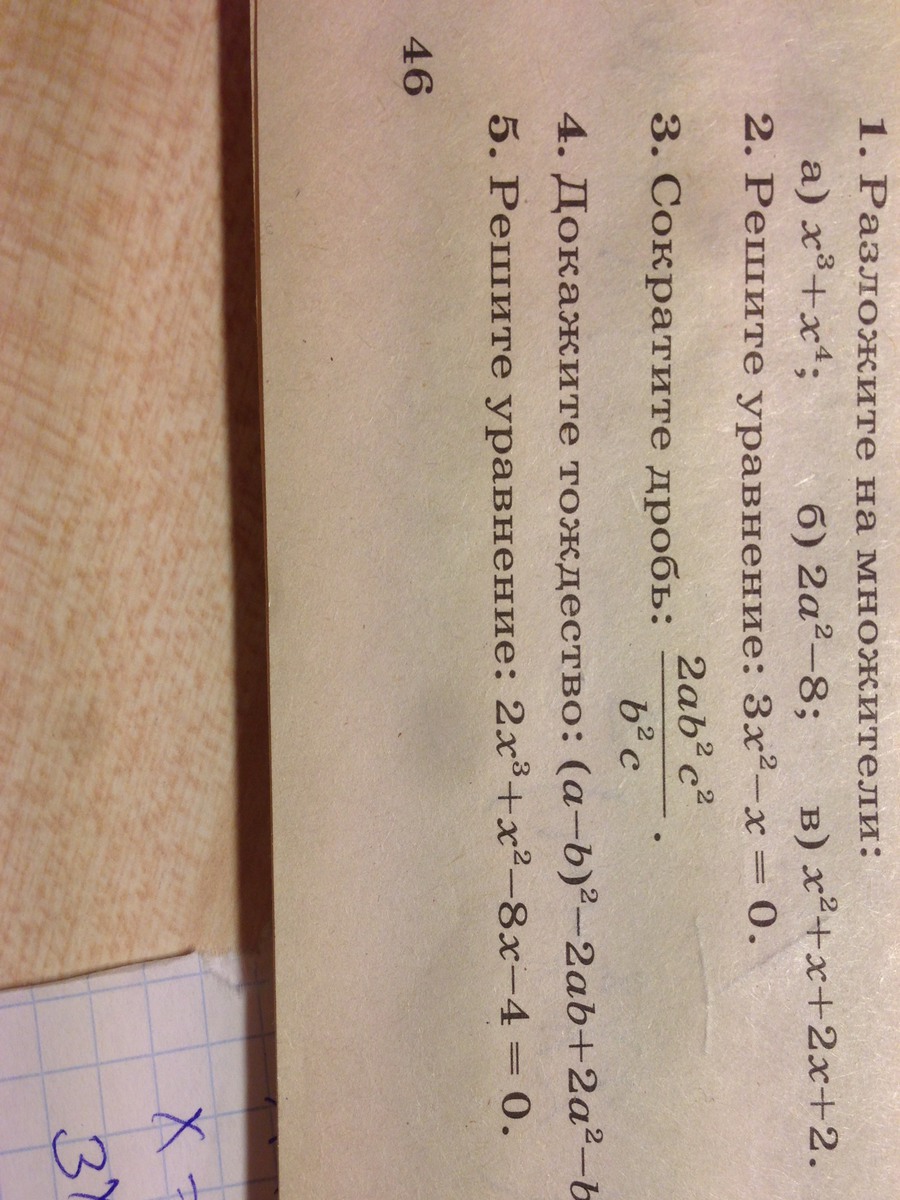 1. Разложите на множители:
а) x³+x⁴; б) 2a²−8; в) x²+x+2x+2.
2. Решите уравнение: 3x²−x = 0.
3. Сократите дробь: 2ab²c² / b²c.
4. Докажите тождество: (a−b)²−2ab+2a²−b
5. Решите уравнение: 2x³+x²−8x−4 = 0.
46
x =
3